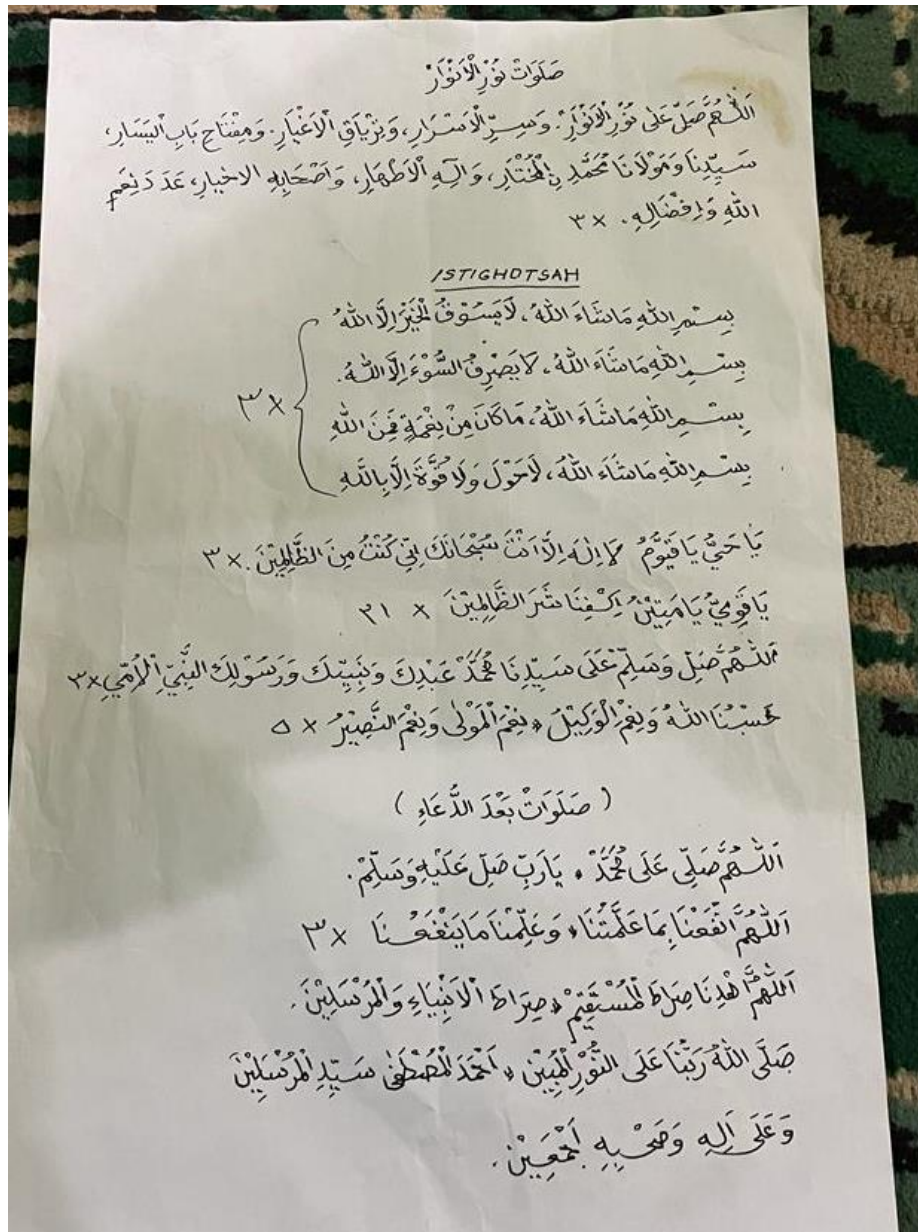 صَلَوَاتْ نُوْرِ الْاَنْوَارْ
اَللّٰهُمَّ صَلِّ عَلَى نُوْرِ الْاَنْوَارْ. وَسِرِّ الْاَسْرَارِ، وَتِرْيَاقِ الْاَغْيَارِ. وَمِفْتَاحِ بَابِ الْيَسَارِ،
سَيِّدِنَا وَمَوْلَانَا مُحَمَّدِ نِ الْمُخْتَارِ، وَآلِهِ الْاَطْهَارِ، وَاَصْحَابِهِ الاخيارِ، عَدَدَ نِعَمِ
اللهِ وَاِفْضَالِهِ. ×٣
ISTIGHOTSAH
بِسْمِ اللهِ مَاشَاءَ اللهُ، لَا يَسُوْقُ الْخَيْرَ اِلَّا اللهُ
بِسْمِ اللهِ مَاشَاءَ اللهُ، لَا يَصْرِفُ السُّوْءَ اِلَّا اللهُ.
بِسْمِ اللهِ مَاشَاءَ اللهُ، مَا كَانَ مِنْ نِعْمَةٍ فَمِنَ اللهِ
بِسْمِ اللهِ مَاشَاءَ اللهُ، لَاحَوْلَ وَلَا قُوَّةَ اِلَّا بِاللهِ
×٣
يَا حَيُّ يَا قَيُّوْمُ لَا اِلٰهَ اِلَّا اَنْتَ سُبْحَانَكَ اِنِّي كُنْتُ مِنَ الظَّالِمِيْنَ. ×٣
يَا قَوِيُّ يَا مَتِيْنُ اِكْفِنَا شَرَ الظَّالِمِيْنَ × ٣١
اَللّٰهُمَّ صَلِّ وَسَلِّمْ عَلَى سَيِّدِنَا مُحَمَّدْ عَبْدِكَ وَنَبِيِّكَ وَرَسُوْلِكَ النَّبِيِّ الْاُمِّيِ ×٣
حَسْبُنَا اللهُ وَنِعْمَ الْوَكِيْلُ * نِعْمَ الْمَوْلٰى وَنِعْمَ النَّصِيْرُ × ٥
( صَلَوَاتْ بَعْدَ الدُّعَاءِ )
اَللّٰهُمَّ صَلِّى عَلَى مُحَمَّدْ * يَارَبِّ صَلِّ عَلَيْهِ وَسَلِّمْ.
اَللّٰهُمَّ انْفَعْنَا بِمَا عَلَّمْتَنَا * وَعَلِّمْنَا مَا يَنْفَعُنَا ×٣
اَللّٰهُمَّ اهْدِنَا صِرَاطَ الْمُسْتَقِيْمْ * صِرَاطَ الْاَنْبِيَاءِ وَالْمُرْسَلِيْنَ.
صَلَّى اللهُ رَبُّنَا عَلَى النُّوْرِ الْمُبِيْن * اَحْمَدَ الْمُصْطَفٰى سَيِّدِ الْمُرْسَلِيْنَ
وَعَلَى اٰلِهِ وَصَحْبِهِ اَجْمَعِيْنَ.